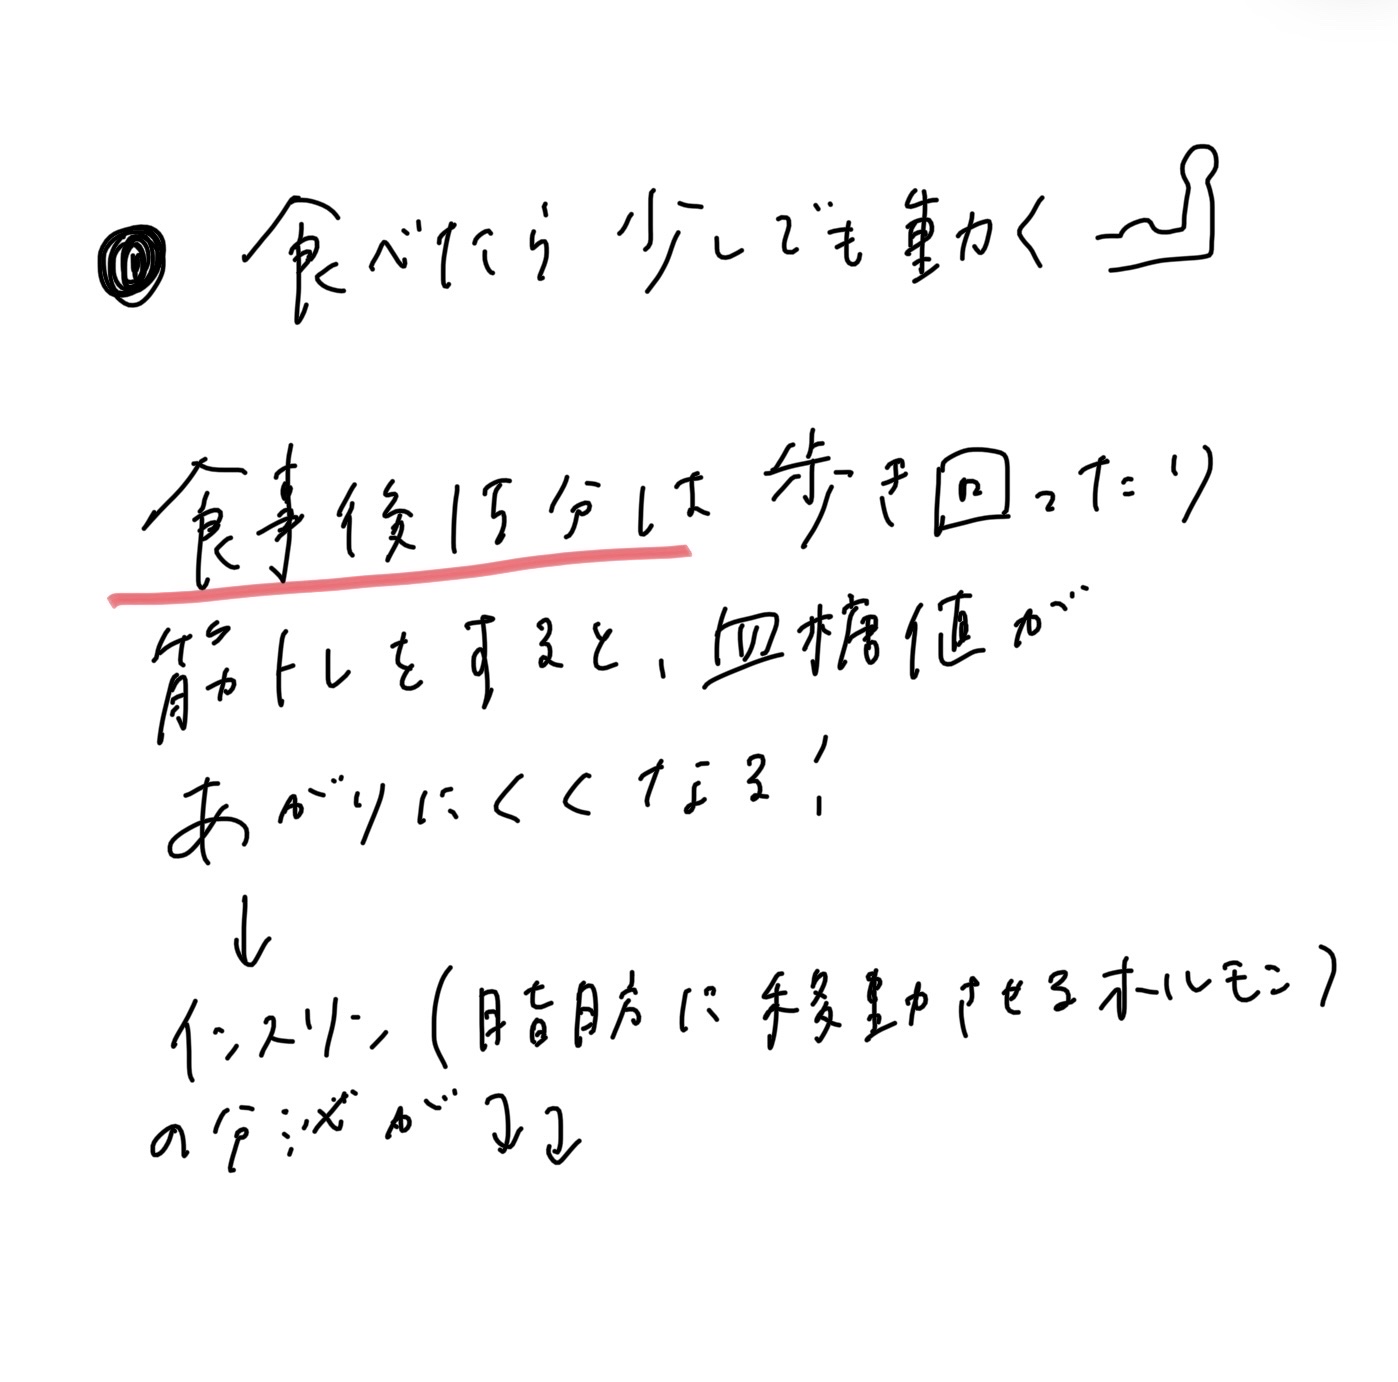 ● 食べたら少しでも動く
食事後15分は歩き回ったり
筋トレをすると、血糖値が
あがりにくくなる!
↓
インスリン(脂肪に移動させるホルモン)
の分泌が↓↓